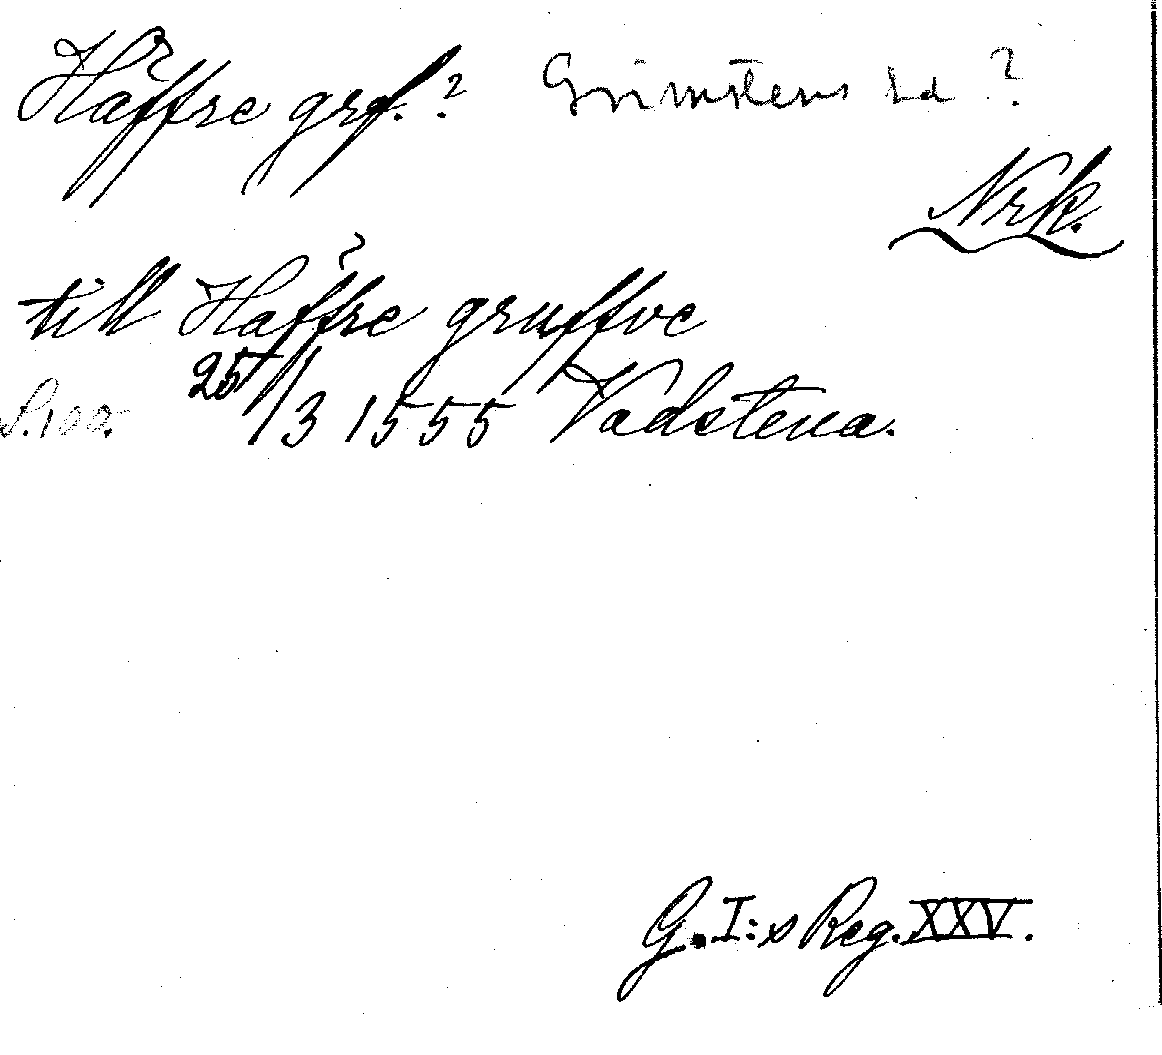 Håffre grf.? Grimstens hd ?
Nrk.
till Håffre gruffve
S. 100. 25/3 1555 Vadstena.
G. I:s Reg. XXV.